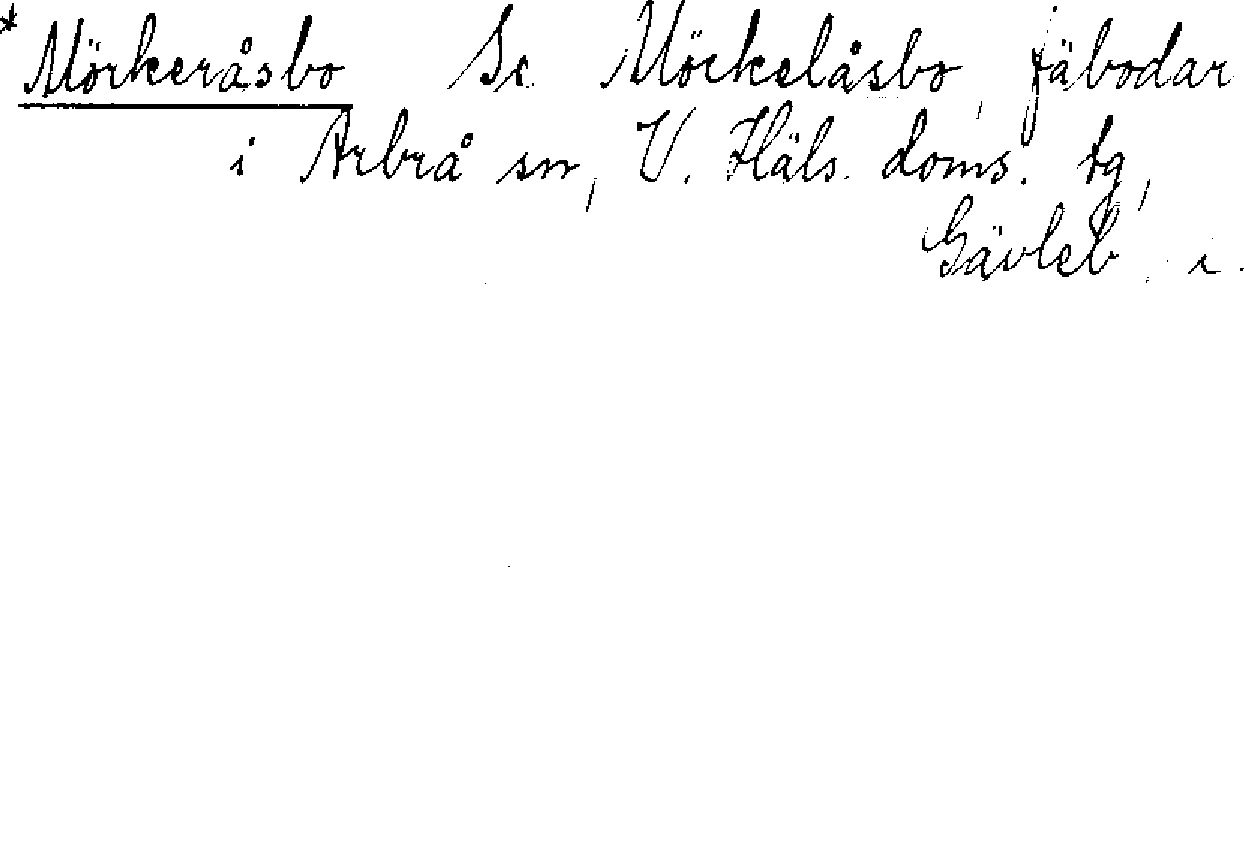 * Mörkeråsbo Se Mörkelåsbo, fäbodar
i Arbrå sn, V. Häls. doms. tg,
Gävleb.